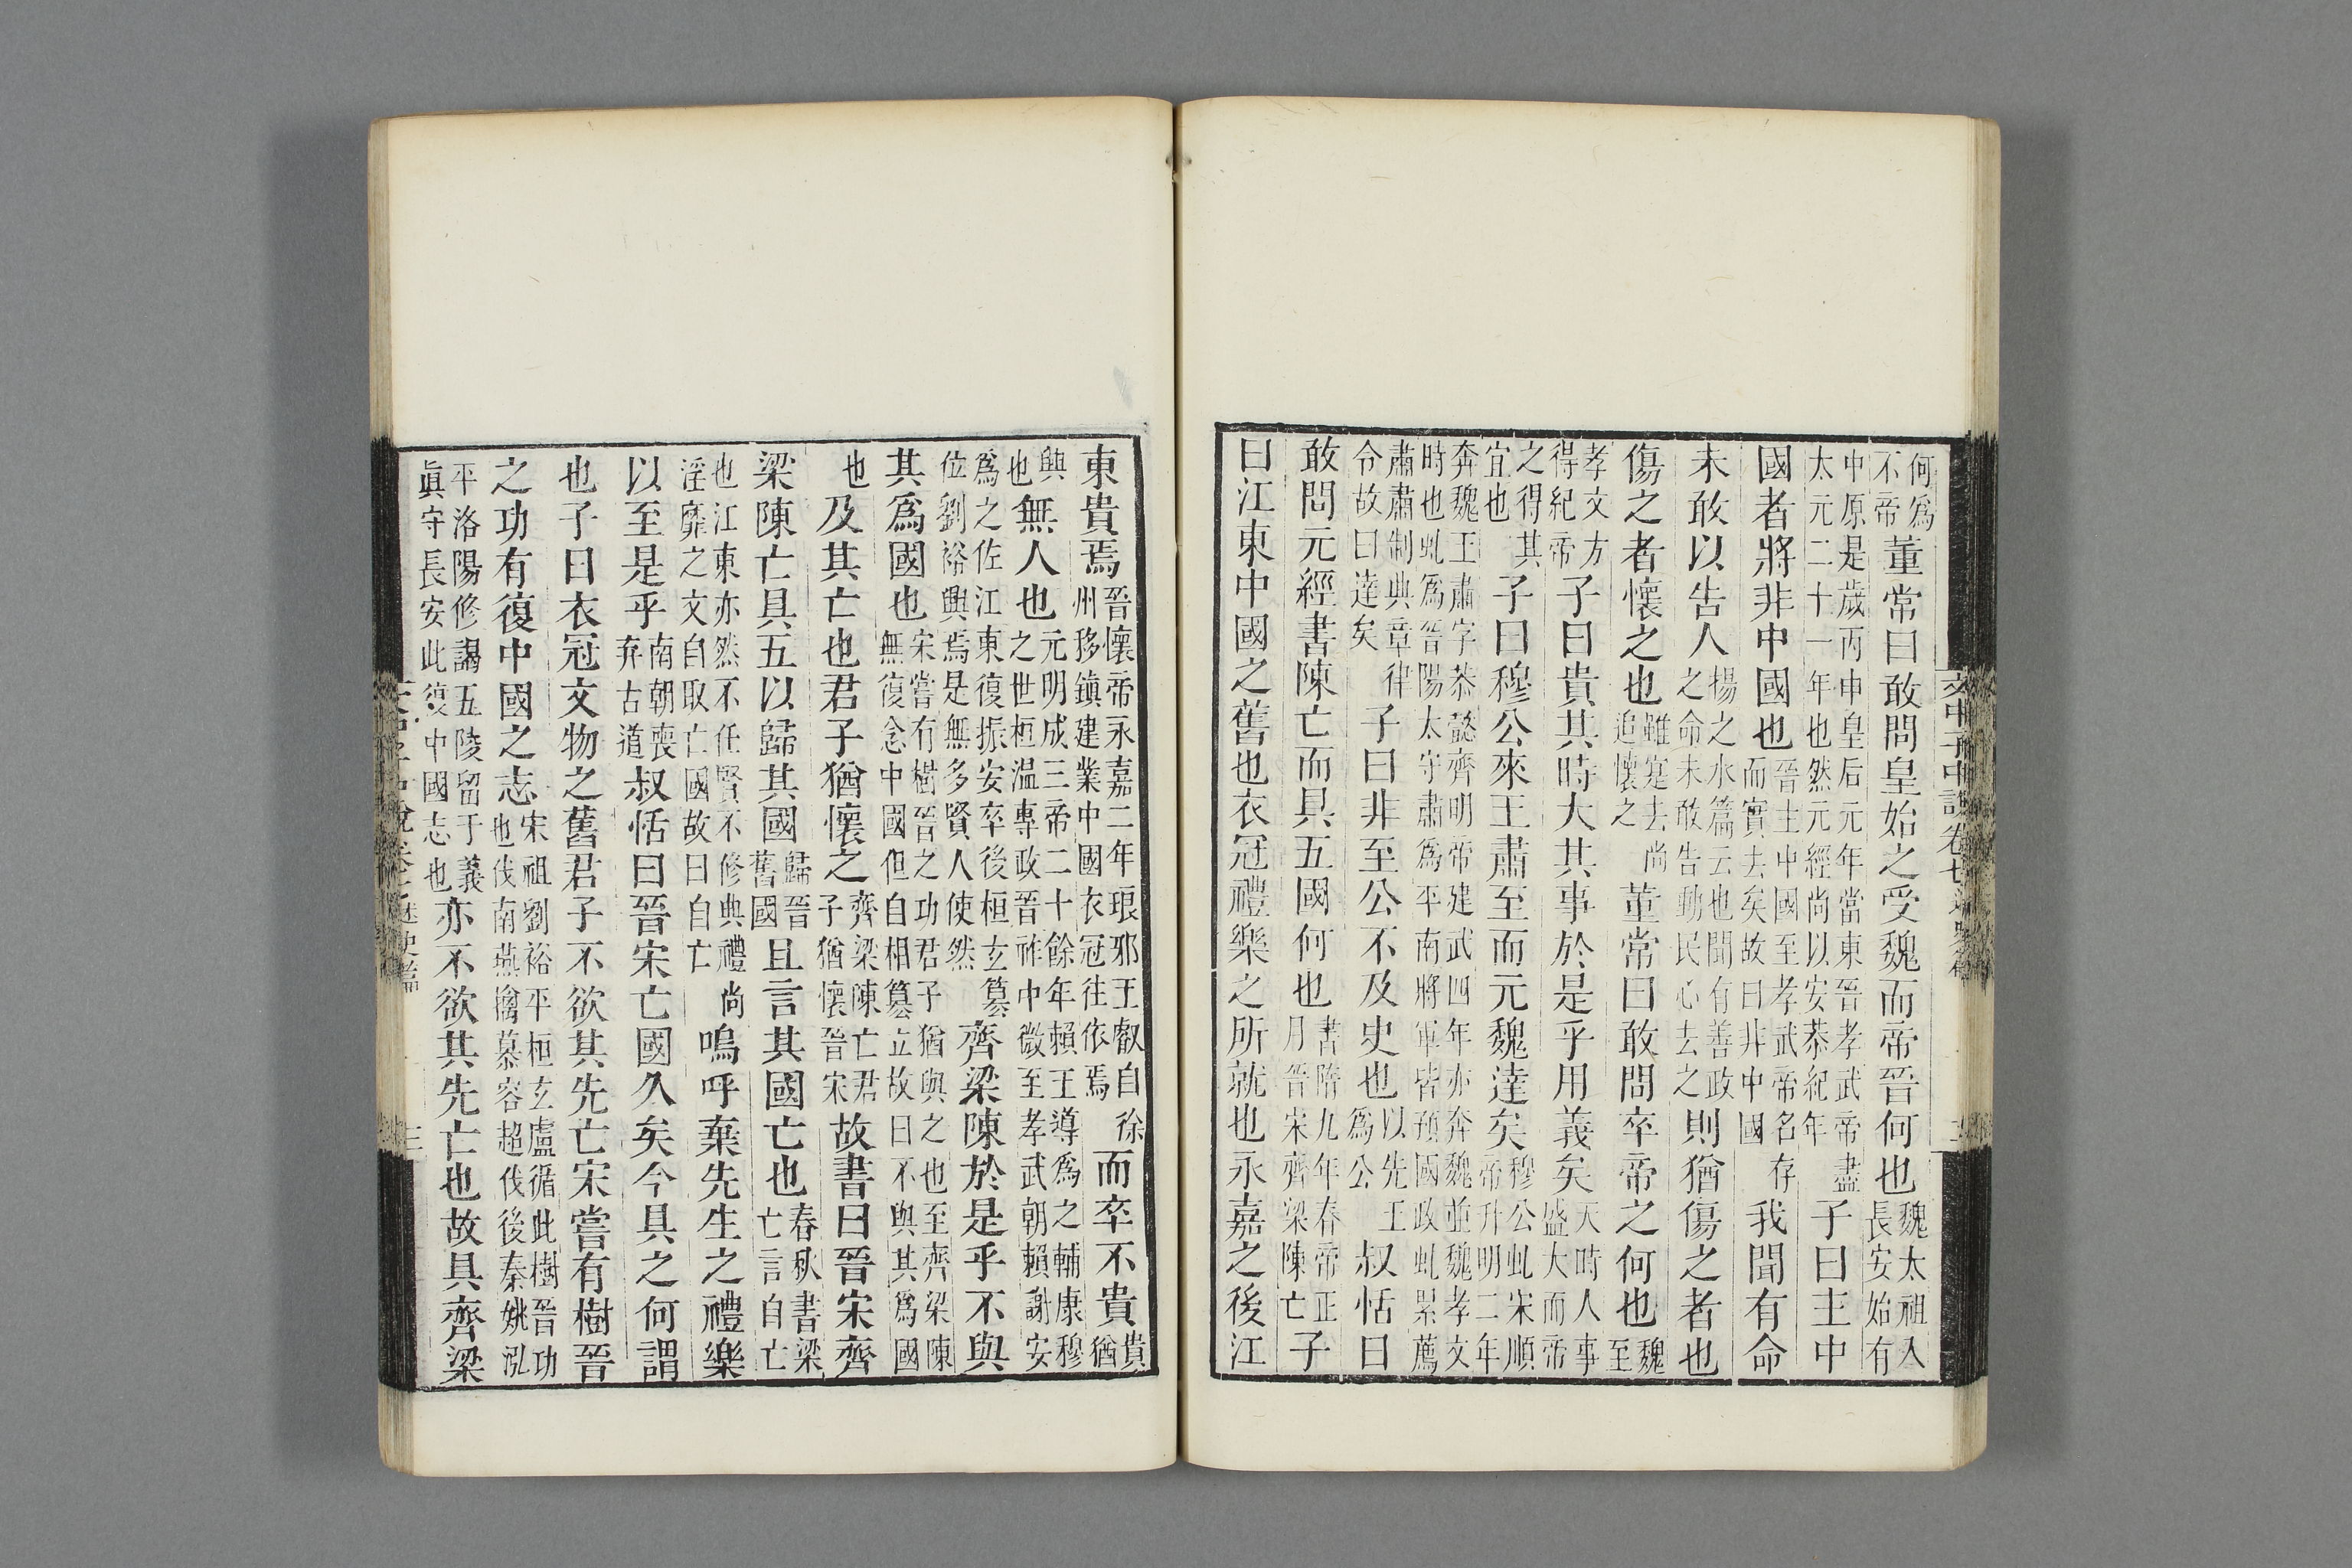 何爲不帝董常曰敢問皇始之受魏而帝晉何也魏太祖入長安始有
中原是歲丙申皇后元年當東晉孝武帝盡太元二十一年也然元經尚以安恭紀年子曰主中
國者將非中國也晉主中國至孝武帝名存而實去矣故曰非中國我聞有命
未敢以告人揚之水篇云也聞有善政之命未敢告動民心去之則猶傷之者也
傷之者懷之也雖寔去尚追懷之董常曰敢問卒帝之何也魏至
孝文方得紀帝子曰貴其時大其事於是乎用義矣天時人事盛大而帝
之得其宜也子曰穆公來王肅至而元魏達矣穆公虬宋順帝升明二年
奔魏王肅字恭懿齊明帝建武四年亦奔魏並魏孝文時也虬爲晉陽太守肅爲平南將軍皆預國政虬累薦
肅肅制典章律令故曰達矣子曰非至公不及史也以先王爲公叔恬曰
敢問元經書陳亡而具五國何也書隋九年春帝正月晉宋齊梁陳亡子
曰江東中國之舊也衣冠禮樂之所就也永嘉之後江
文中子中說卷七
東貴焉晉懷帝永嘉二年琅邪王叡自徐州移鎮建業中國衣冠往依焉而卒不貴貴猶
與也無人也元明成三帝二十餘年賴王導爲之輔康穆之世桓温專政晉祚中微至孝武朝賴謝安
爲之佐江東復振安卒後桓玄篡位劉裕興焉是無多賢人使然齊梁陳於是乎不與
其爲國也宋嘗有樹晉之功君子猶與之也至齊梁陳無復念中國但自相篡立故曰不與其爲國
也及其亡也君子猶懷之齊梁陳亡君子猶懷晉宋故書曰晉宋齊
梁陳亡具五以歸其國歸晉舊國且言其國亡也春秋書梁亡言自亡
也江東亦然不任賢不修典禮尚淫靡之文自取亡國故曰自亡嗚呼棄先生之禮樂
以至是乎南朝喪弃古道叔恬曰晉宋亡國久矣今具之何謂
也子曰衣冠文物之舊君子不欲其先亡宋嘗有樹晉
之功有復中國之志宋祖劉裕平桓玄盧循此樹晉功也伐南燕擒慕容超伐後秦姚泓
平洛陽修謁五陵留于義眞守長安此復中國志也亦不欲其先亡也故具齊梁